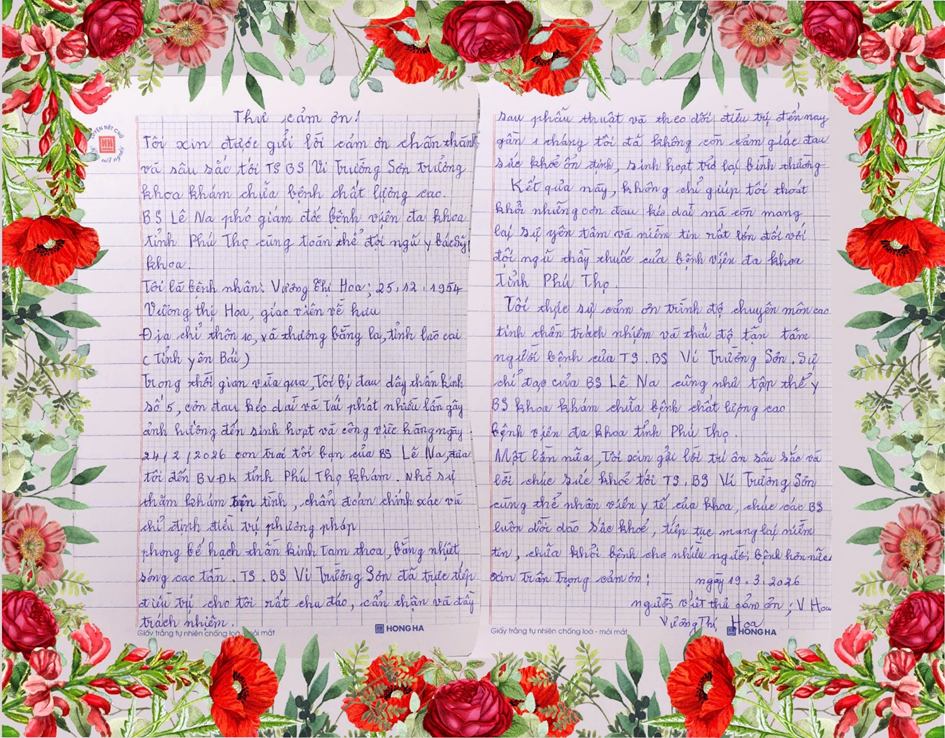 Thư cảm ơn!
Tôi xin được gửi lời cảm ơn chân thành
và sâu sắc tới TS BS Vi Trường Sơn trưởng
khoa khám chữa bệnh chất lượng cao.
BS Lê Na phó giám đốc bệnh viện đa khoa
tỉnh Phú Thọ cùng toàn thể đội ngũ y bác sỹ
khoa.
Tôi là bệnh nhân: Vương Thị Hoa; 25.12.1954
Vương thị Hoa, giáo viên về hưu
Địa chỉ thôn 10, xã thượng bằng la, tỉnh lào cai
( Tỉnh yên Bái )
Trong thời gian vừa qua, Tôi bị đau dây thần kinh
số 5, cơn đau kéo dài và Tái phát nhiều lần gây
ảnh hưởng đến sinh hoạt và công việc hàng ngày.
24/2/2026 con trai tôi bạn của BS Lê Na, đưa
tôi đến BVĐK tỉnh Phú Thọ khám. Nhờ sự
thăm khám tận tình, chẩn đoán chính xác và
chỉ định điều trị phương pháp
phong bế hạch thần kinh Tam thoa, bằng nhiệt
sóng cao tần. TS. BS Vi Trường Sơn đã trực tiếp
điều trị cho tôi rất chu đáo, cẩn thận và đầy
trách nhiệm.
Giấy trắng tự nhiên chống loá - mỏi mắt
HONG HA
sau phẫu thuật và theo dõi điều trị đến nay
gần 1 tháng tôi đã không còn cảm giác đau
sức khoẻ ổn định, sinh hoạt trở lại bình thường
Kết quả này, không chỉ giúp tôi thoát
khỏi những cơn đau kéo dài mà còn mang
lại sự yên tâm và niềm tin rất lớn đối với
đội ngũ thầy thuốc của bệnh viện đa khoa
Tỉnh Phú Thọ.
Tôi thực sự cảm ơn trình độ chuyên môn cao
tinh thần trách nhiệm và thái độ tận tâm
người bệnh của TS. BS Vi Trường Sơn. Sự
chỉ đạo của BS Lê Na cũng như tập thể y
BS khoa khám chữa bệnh chất lượng cao
bệnh viện đa khoa tỉnh Phú Thọ.
Một lần nữa, Tôi xin gửi lời tri ân sâu sắc và
lời chúc sức khoẻ tới TS. BS Vi Trường Sơn
cùng thể nhân viên y tế của khoa, chúc các BS
luôn dồi dào sức khoẻ, tiếp tục mang lại niềm
tin, chữa khỏi bệnh cho nhiều người bệnh hơn nữa
xin trân trọng cảm ơn! ngày 19.3.2026
người viết thư cảm ơn; V Hoa
Vương Thị Hoa
Giấy trắng tự nhiên chống loá - mỏi mắt
HONG HA